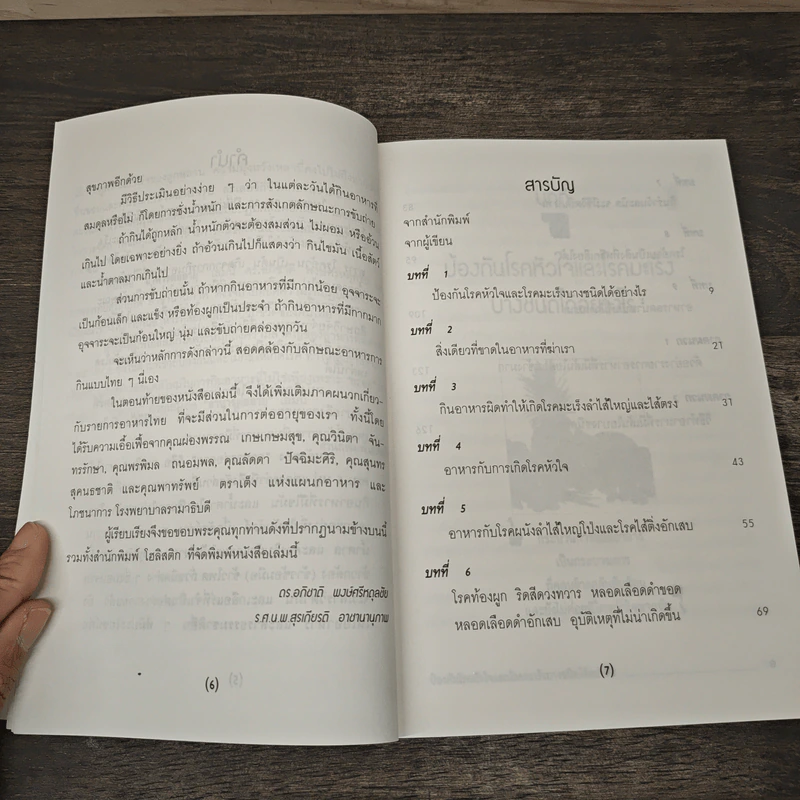 สุขภาพอีกด้วย
มีวิธีประเมินอย่างง่าย ๆ ว่า ในแต่ละวันได้กินอาหารที่
สมดุลหรือไม่ ก็โดยการชั่งน้ำหนัก และการสังเกตลักษณะการขับถ่าย
ถ้ากินได้ถูกหลัก น้ำหนักตัวจะต้องสมส่วน ไม่ผอม หรืออ้วน
เกินไป โดยเฉพาะอย่างยิ่ง ถ้าอ้วนเกินไปก็แสดงว่า กินไขมัน เนื้อสัตว์
และน้ำตาลมากเกินไป
ส่วนการขับถ่ายนั้น ถ้าหากกินอาหารที่มีกากน้อย อุจจาระจะ
เป็นก้อนเล็ก และแข็ง หรือท้องผูกเป็นประจำ ถ้ากินอาหารที่มีกากมาก
อุจจาระจะเป็นก้อนใหญ่ นุ่ม และขับถ่ายคล่องทุกวัน
จะเห็นว่าหลักการดังกล่าวนี้ สอดคล้องกับลักษณะอาหารการ
กินแบบไทย ๆ นี่เอง
ในตอนท้ายของหนังสือเล่มนี้ จึงได้เพิ่มเติมภาคผนวกเกี่ยว-
กับรายการอาหารไทย ที่จะมีส่วนในการต่ออายุของเรา ทั้งนี้โดย
ได้รับความเอื้อเฟื้อจากคุณผ่องพรรณ เกษเกษมสุข, คุณวินิตา จัน-
ทรรักษา, คุณพรพิมล ถนอมพล, คุณลัดดา ปัจฉิมะศิริ, คุณสุนทร
สุคนธชาติ และคุณพาทรัพย์ ตราเต็ง แห่งแผนกอาหาร และ
โภชนาการ โรงพยาบาลรามาธิบดี
ผู้เรียบเรียงจึงขอขอบพระคุณทุกท่านดังที่ปรากฏนามข้างบนนี้
รวมทั้งสำนักพิมพ์ โฮลิสติก ที่จัดพิมพ์หนังสือเล่มนี้
ดร.อภิชาติ พงษ์ศรีหดุลชัย
ร.ศ.น.พ.สุรเกียรติ อาชานานุภาพ
(6)
สารบัญ
จากสำนักพิมพ์
จากผู้เขียน
บทที่ 1
ป้องกันโรคหัวใจและโรคมะเร็งบางชนิดได้อย่างไร 9
บทที่ 2
สิ่งเดียวที่ขาดในอาหารที่ฆ่าเรา 21
บทที่ 3
กินอาหารผิดทำให้เกิดโรคมะเร็งลำไส้ใหญ่และไส้ตรง 31
บทที่ 4
อาหารกับการเกิดโรคหัวใจ 43
บทที่ 5
อาหารกับโรคผนังลำไส้ใหญ่โป่งและโรคไส้ติ่งอักเสบ 55
บทที่ 6
โรคท้องผูก ริดสีดวงทวาร หลอดเลือดดำขอด
หลอดเลือดดำอักเสบ อุบัติเหตุที่ไม่น่าเกิดขึ้น 69
(7)